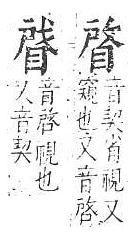 䁈
音契省視又
窺也又音啓
音啓視也
又音契